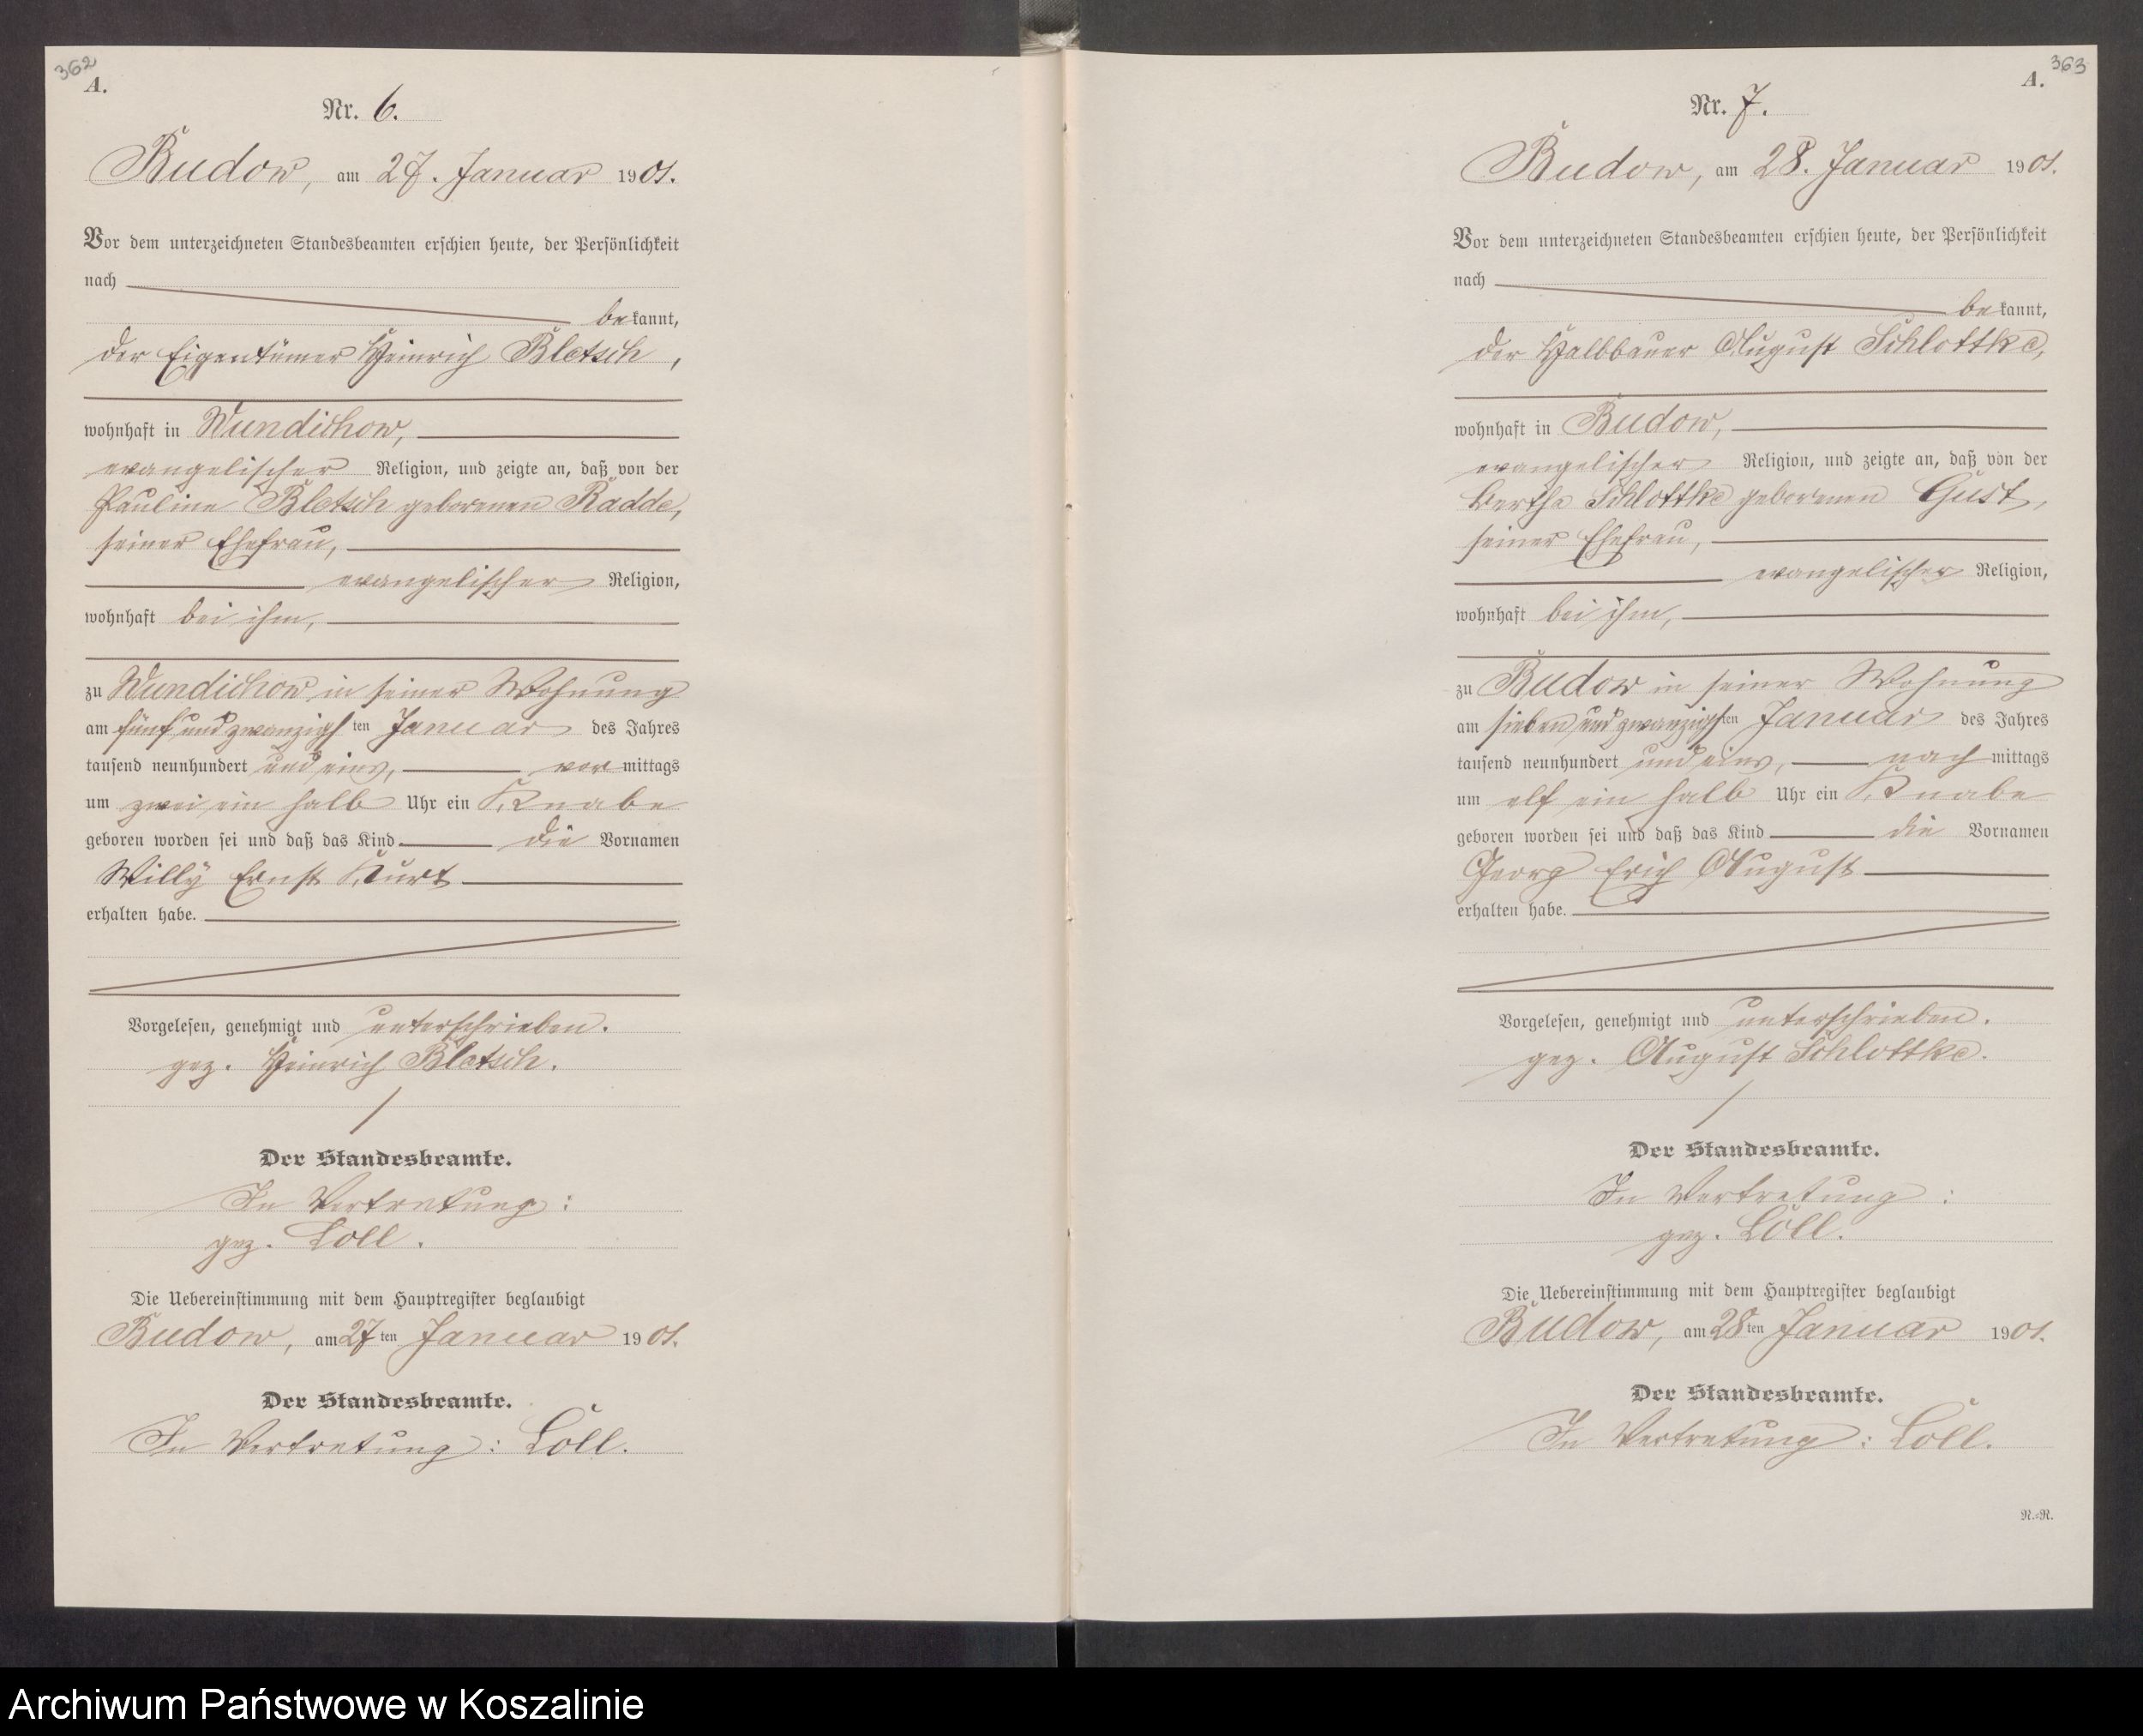 362
A.
Nr. 6.
Budow, am 27. Januar 1901.
Vor dem unterzeichneten Standesbeamten erschien heute, der Persönlichkeit
nach
bekannt,
der Eigentümer Heinrich Bletsch,
wohnhaft in Wundichow,
evangelischer Religion, und zeigte an, daß von der
Pauline Bletsch geborenen Radde,
seiner Ehefrau,
evangelischer Religion,
wohnhaft bei ihm,
zu Wundichow in seiner Wohnung
am fünf und zwanzigsten Januar des Jahres
tausend neunhundert und eins, vormittags
um zwei ein halb Uhr ein Knabe
geboren worden sei und daß das Kind die Vornamen
Willy Ernst Kurt
erhalten habe.
Vorgelesen, genehmigt und unterschrieben.
gez. Heinrich Bletsch.
Der Standesbeamte.
In Vertretung:
gez. Löll.
Die Uebereinstimmung mit dem Hauptregister beglaubigt
Budow, am 27ten Januar 1901.
Der Standesbeamte.
In Vertretung: Löll.
363
A.
Nr. 7.
Budow, am 28. Januar 1901.
Vor dem unterzeichneten Standesbeamten erschien heute, der Persönlichkeit
nach
bekannt,
der Halbbauer August Schlottke,
wohnhaft in Budow,
evangelischer Religion, und zeigte an, daß von der
Bertha Schlottke geborenen Gust,
seiner Ehefrau,
evangelischer Religion,
wohnhaft bei ihm,
zu Budow in seiner Wohnung
am sieben und zwanzigsten Januar des Jahres
tausend neunhundert und eins, nachmittags
um elf ein halb Uhr ein Knabe
geboren worden sei und daß das Kind die Vornamen
Georg Erich August
erhalten habe.
Vorgelesen, genehmigt und unterschrieben.
gez. August Schlottke.
Der Standesbeamte.
In Vertretung:
gez. Löll.
Die Uebereinstimmung mit dem Hauptregister beglaubigt
Budow, am 28ten Januar 1901.
Der Standesbeamte.
In Vertretung: Löll.
R.=R.
Archiwum Państwowe w Koszalinie